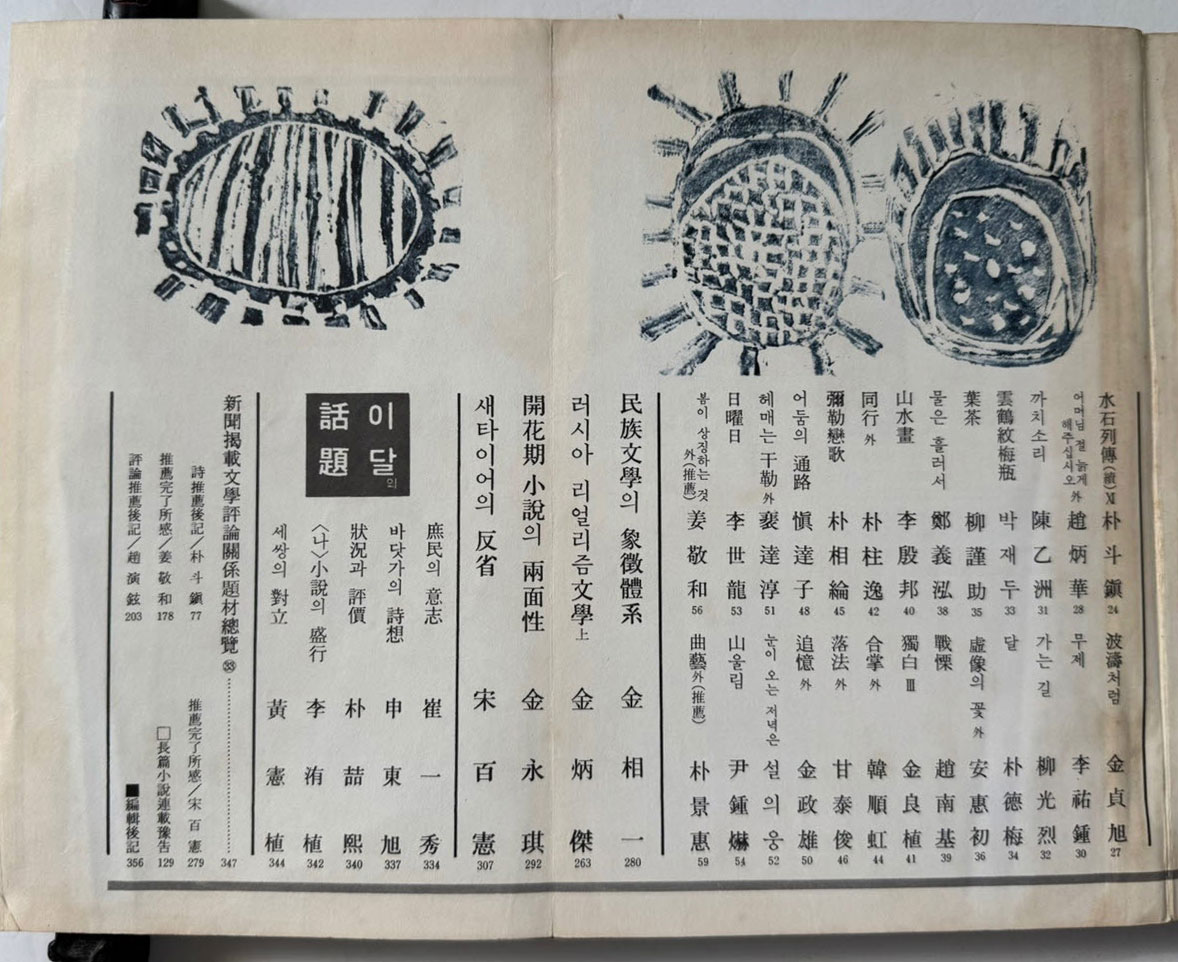 水石列傳(續)Ⅵ 朴斗鎭 24
波濤처럼 金貞旭 27
어머님 절 늙게 해주십시오 外 趙炳華 28
무제 李祐鍾 30
까치소리 陳乙洲 31
가는 길 柳光烈 32
雲鶴紋梅瓶 박재두 33
달 朴德梅 34
葉茶 柳謹助 35
虛像의 꽃 外 安惠初 36
물은 흘러서 鄭義泓 38
戰慄 趙南基 39
山水畫 李殷邦 40
獨白 Ⅲ 金良植 41
同行 外 朴柱逸 42
合掌 外 韓順虹 44
彌勒戀歌 朴相綸 45
落法 外 甘泰俊 46
어둠의 通路 愼達子 48
追憶 外 金政雄 50
헤매는 干勒 外 裵達淳 51
눈이 오는 저녁은 설의웅 52
日曜日 李世龍 53
山울림 尹鍾爀 54
봄이 상징하는 것 外(推薦) 姜敬和 56
曲藝 外(推薦) 朴景惠 59
民族文學의 象徵體系 金相一 280
러시아 리얼리즘文學 上 金炳傑 263
開花期 小說의 兩面性 金永琪 292
새타이어의 反省 宋百憲 307
이달의 話題
庶民의 意志 崔一秀 334
바닷가의 詩想 申東旭 337
狀況과 評價 朴喆熙 340
〈나〉小說의 盛行 李洧植 342
세쌍의 對立 黃憲植 344
新聞揭載文學評論關係題材總覽 ㉝ 347
詩推薦後記／朴斗鎭 77
推薦完了所感／宋百憲 279
推薦完了所感／姜敬和 178
□長篇小說連載豫告 129
評論推薦後記／趙演鉉 203
■編輯後記 356